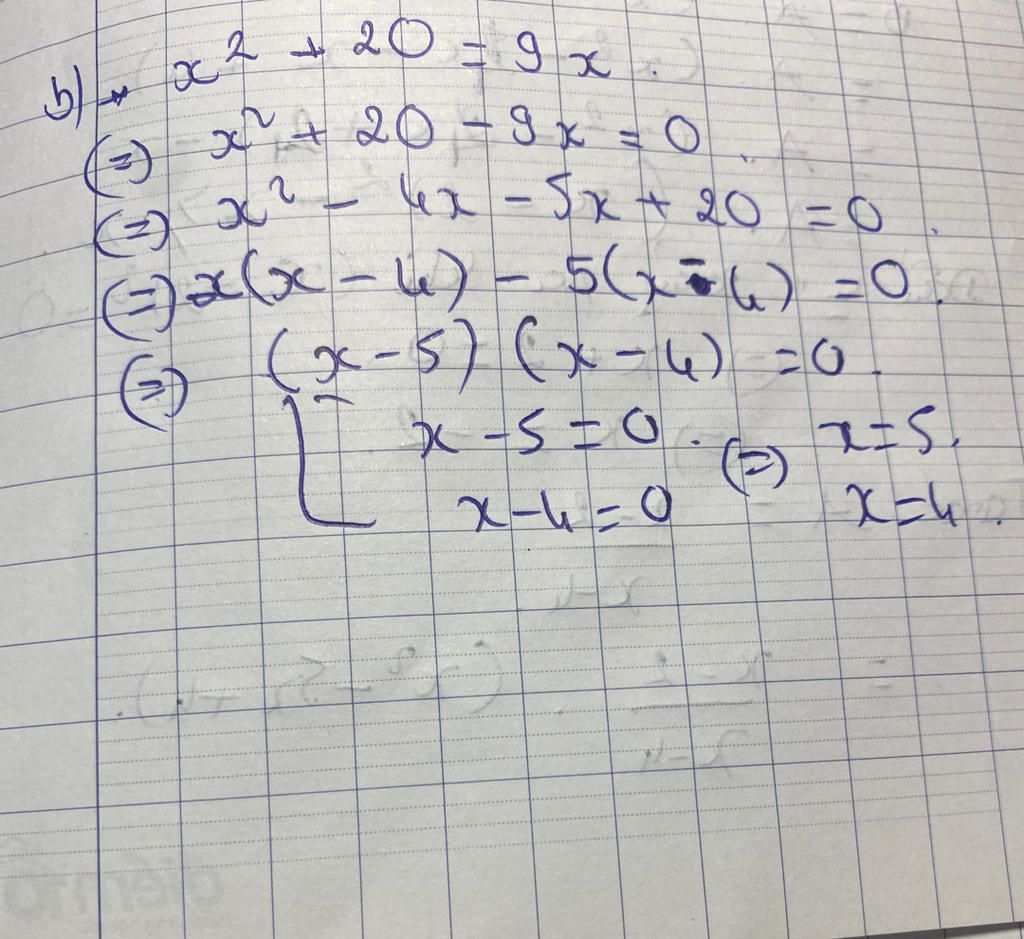 b) + x² + 20 = 9x.
(=) x² + 20 - 9x = 0.
(=) x² - 4x - 5x + 20 = 0.
(=) x(x - 4) - 5(x - 4) = 0.
(=) (x - 5) (x - 4) = 0.
[ x - 5 = 0. (=) x = 5.
x - 4 = 0 x = 4.